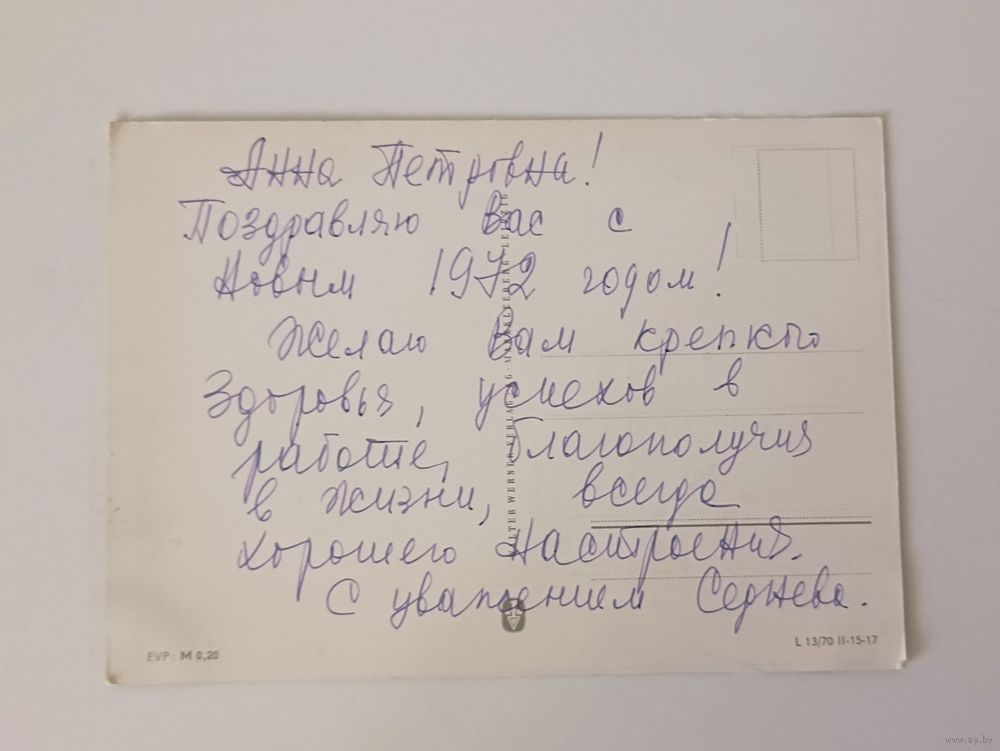 Анна Петровна!
Поздравляю Вас с
Новым 1972 годом!
Желаю Вам крепкого
Здоровья, успехов в
работе, благополучия
в жизни, всегда
хорошего настроения.
С уважением
EVP: M 0,20
L 13/70 II-15-17
www.ay.by